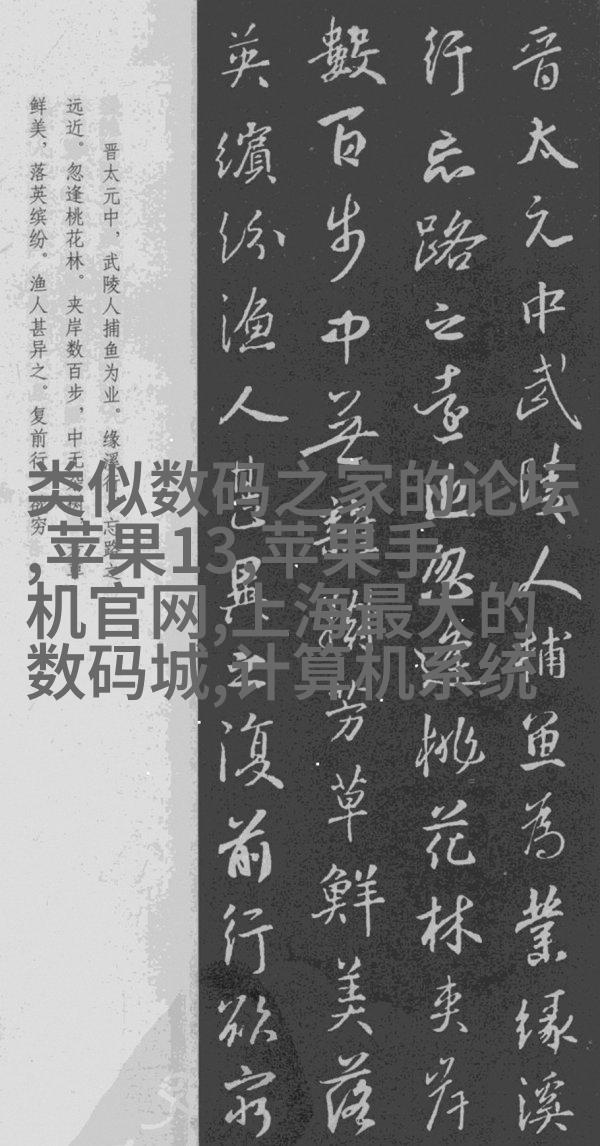 晋太元中武陵人捕魚為業緣溪
行忘路之遠近忽逢桃花林夾岸
數百步中無雜樹芳草鮮美落
英繽紛漁人甚異之復前行欲窮
晋太元中，武陵人捕鱼为业。缘溪行，忘路之
远近。忽逢桃花林。夹岸数百步，中无
鲜美，落英缤纷。渔人甚异之。复前行，欲穷
类似数码之家的论坛
,苹果13,苹果手
机官网,上海最大的
数码城,计算机系统